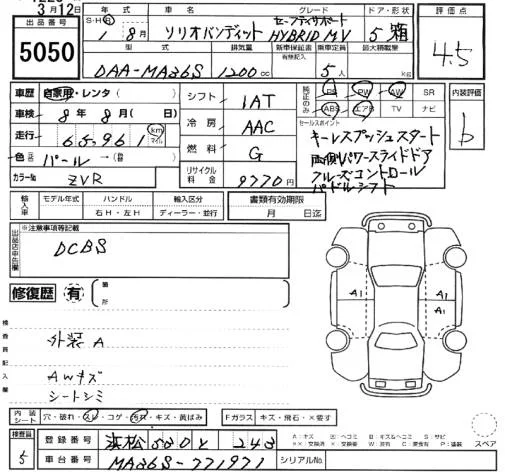 3月12日
出品番号
5050
年式 車名 グレード ドア・形状 評価点
S・H・R 1年 8月 ソリオバンディット セーフティサポート HYBRID MV 5 箱 4.5
型式 排気量 新車保証書 有無記入 乗車定員 最大積載量
DAA-MA36S 1200cc 5人 kg
車歴 自家用・レンタ( )
車検 8年8月( 日)
走行 65,961 km マイル
色 パール →(替)
カラーNo ZVR
シフト IAT
冷房 AAC
燃料 G
リサイクル料金 9770円
純正のみ PS PW AW SR
ABS エアB TV ナビ
内装評価 b
セールスポイント
キーレスプッシュスタート
両側パワースライドドア
クルーズコントロール
パドルシフト
輸入車 モデル年式 ハンドル 輸入区分 書類有効期限
右H・左H ディーラー・並行 月 日迄
出品店申告欄 ※注意事項等記載
DCBS
修復歴 有 箇所
検査員記入欄
外装A
AWキズ
シートシミ
A1 A1
内装シート 穴・破れ・スレ・コゲ・汚れ・キズ・黄ばみ Fガラス キズ・飛石・×要す
スペア
検査員 5
登録番号 浜松 530 と 243
車台番号 MA36S-771971 シリアルNo.